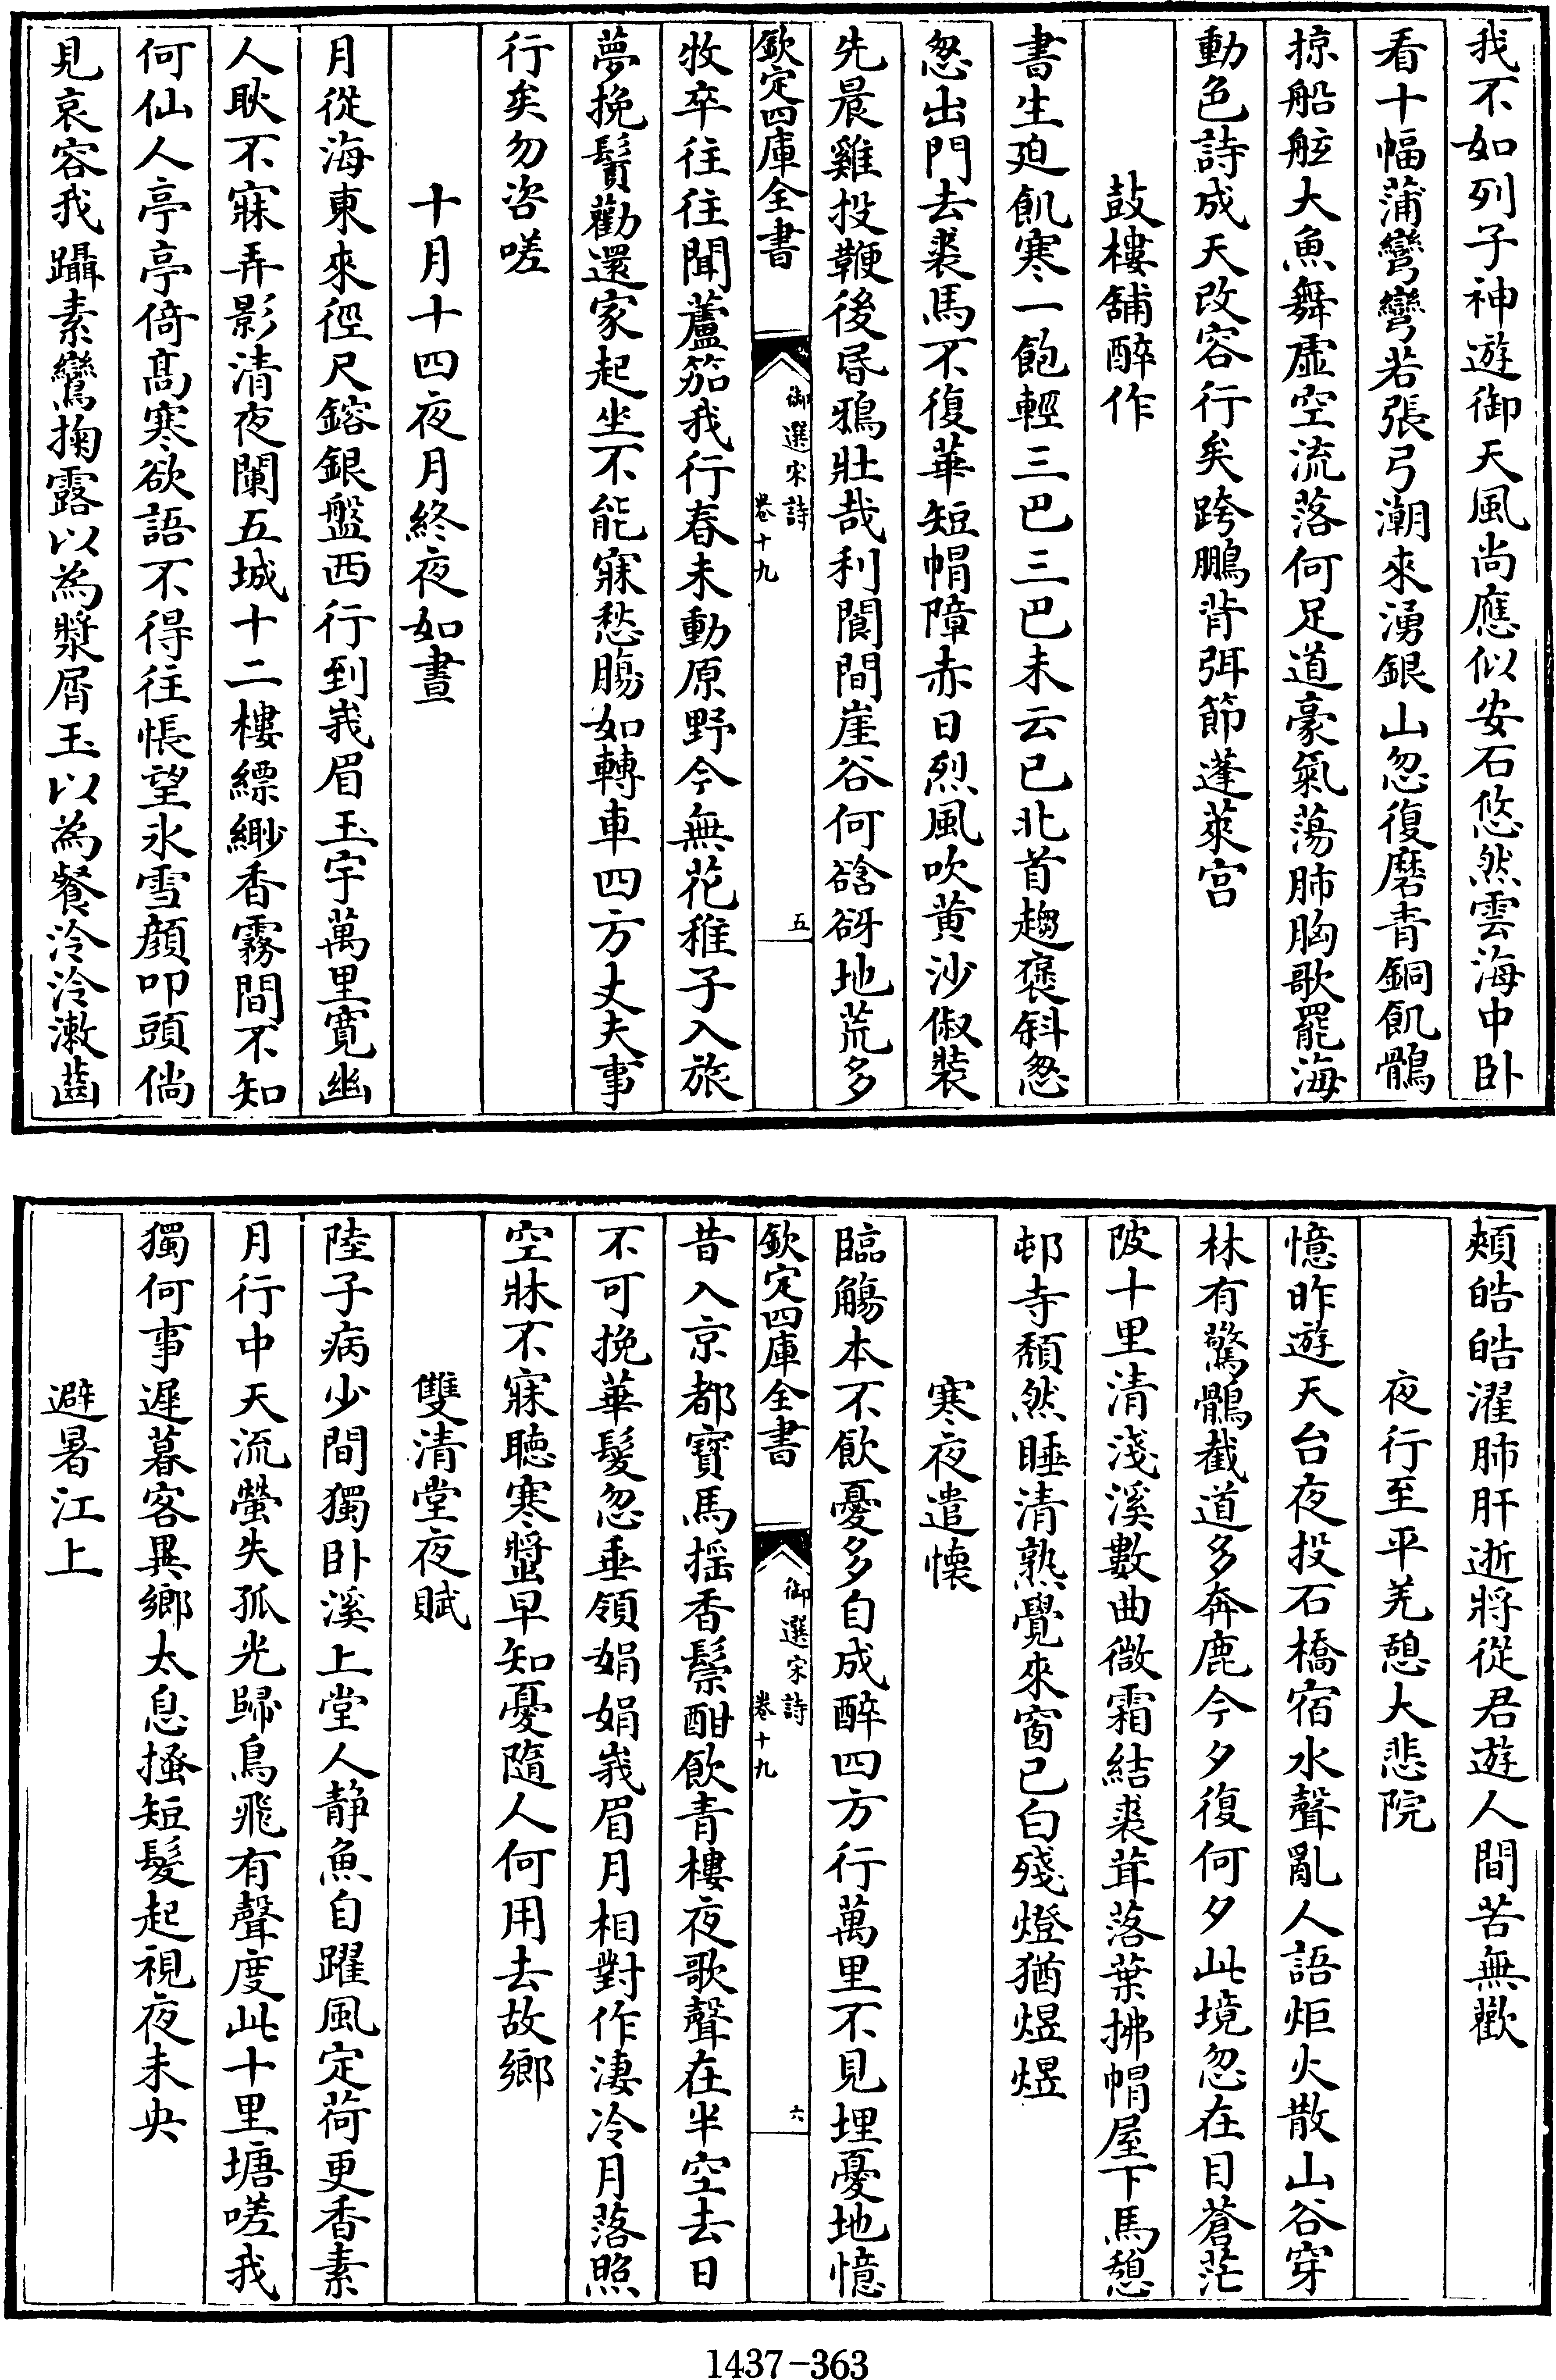 我不如列子神遊御天風尚應似安石悠然雲海中卧
看十幅蒲彎彎若張弓潮來湧銀山忽復磨青銅飢鶻
掠船舷大魚舞虛空流落何足道豪氣蕩肺胸歌罷海
動色詩成天改容行矣跨鵬背弭節蓬萊宫
鼓樓舖醉作
書生廹飢寒一飽輕三巴三巴未云已北首趨褒斜怱
怱出門去裘馬不復華短帽障赤日烈風吹黄沙俶裝
先晨雞投鞭後昏鴉壯哉利閬間崖谷何谽谺地荒多
欽定四庫全書
御選宋詩
卷十九
五
牧卒往往聞蘆笳我行春未動原野今無花稚子入旅
夢挽鬚勸還家起坐不能寐愁腸如轉車四方丈夫事
行矣勿咨嗟
十月十四夜月終夜如晝
月從海東來徑尺鎔銀盤西行到峩眉玉宇萬里寛幽
人耿不寐弄影清夜闌五城十二樓縹緲香霧間不知
何仙人亭亭倚髙寒欲語不得往悵望氷雪顔叩頭倘
見哀容我躡素鸞掬露以為漿屑玉以為餐泠泠漱齒
頰皓皓濯肺肝逝將從君遊人間苦無歡
夜行至平羌憩大悲院
憶昨遊天台夜投石橋宿水聲亂人語炬火散山谷穿
林有驚鶻截道多奔鹿今夕復何夕此境忽在目蒼茫
陂十里清淺溪數曲微霜結裘茸落葉拂帽屋下馬憩
邨寺頹然睡清熟覺來窗已白殘燈猶煜煜
寒夜遣懷
臨觴本不飲憂多自成醉四方行萬里不見埋憂地憶
欽定四庫全書
御選宋詩
卷十九
六
昔入京都寶馬揺香鬃酣飲青樓夜歌聲在半空去日
不可挽華髮忽垂領娟娟峩眉月相對作淒冷月落照
空牀不寐聴寒螿早知憂隨人何用去故鄉
雙清堂夜賦
陸子病少間獨卧溪上堂人静魚自躍風定荷更香素
月行中天流螢失孤光歸鳥飛有聲度此十里塘嗟我
獨何事遲暮客異鄉太息搔短髮起視夜未央
避暑江上
1437-363